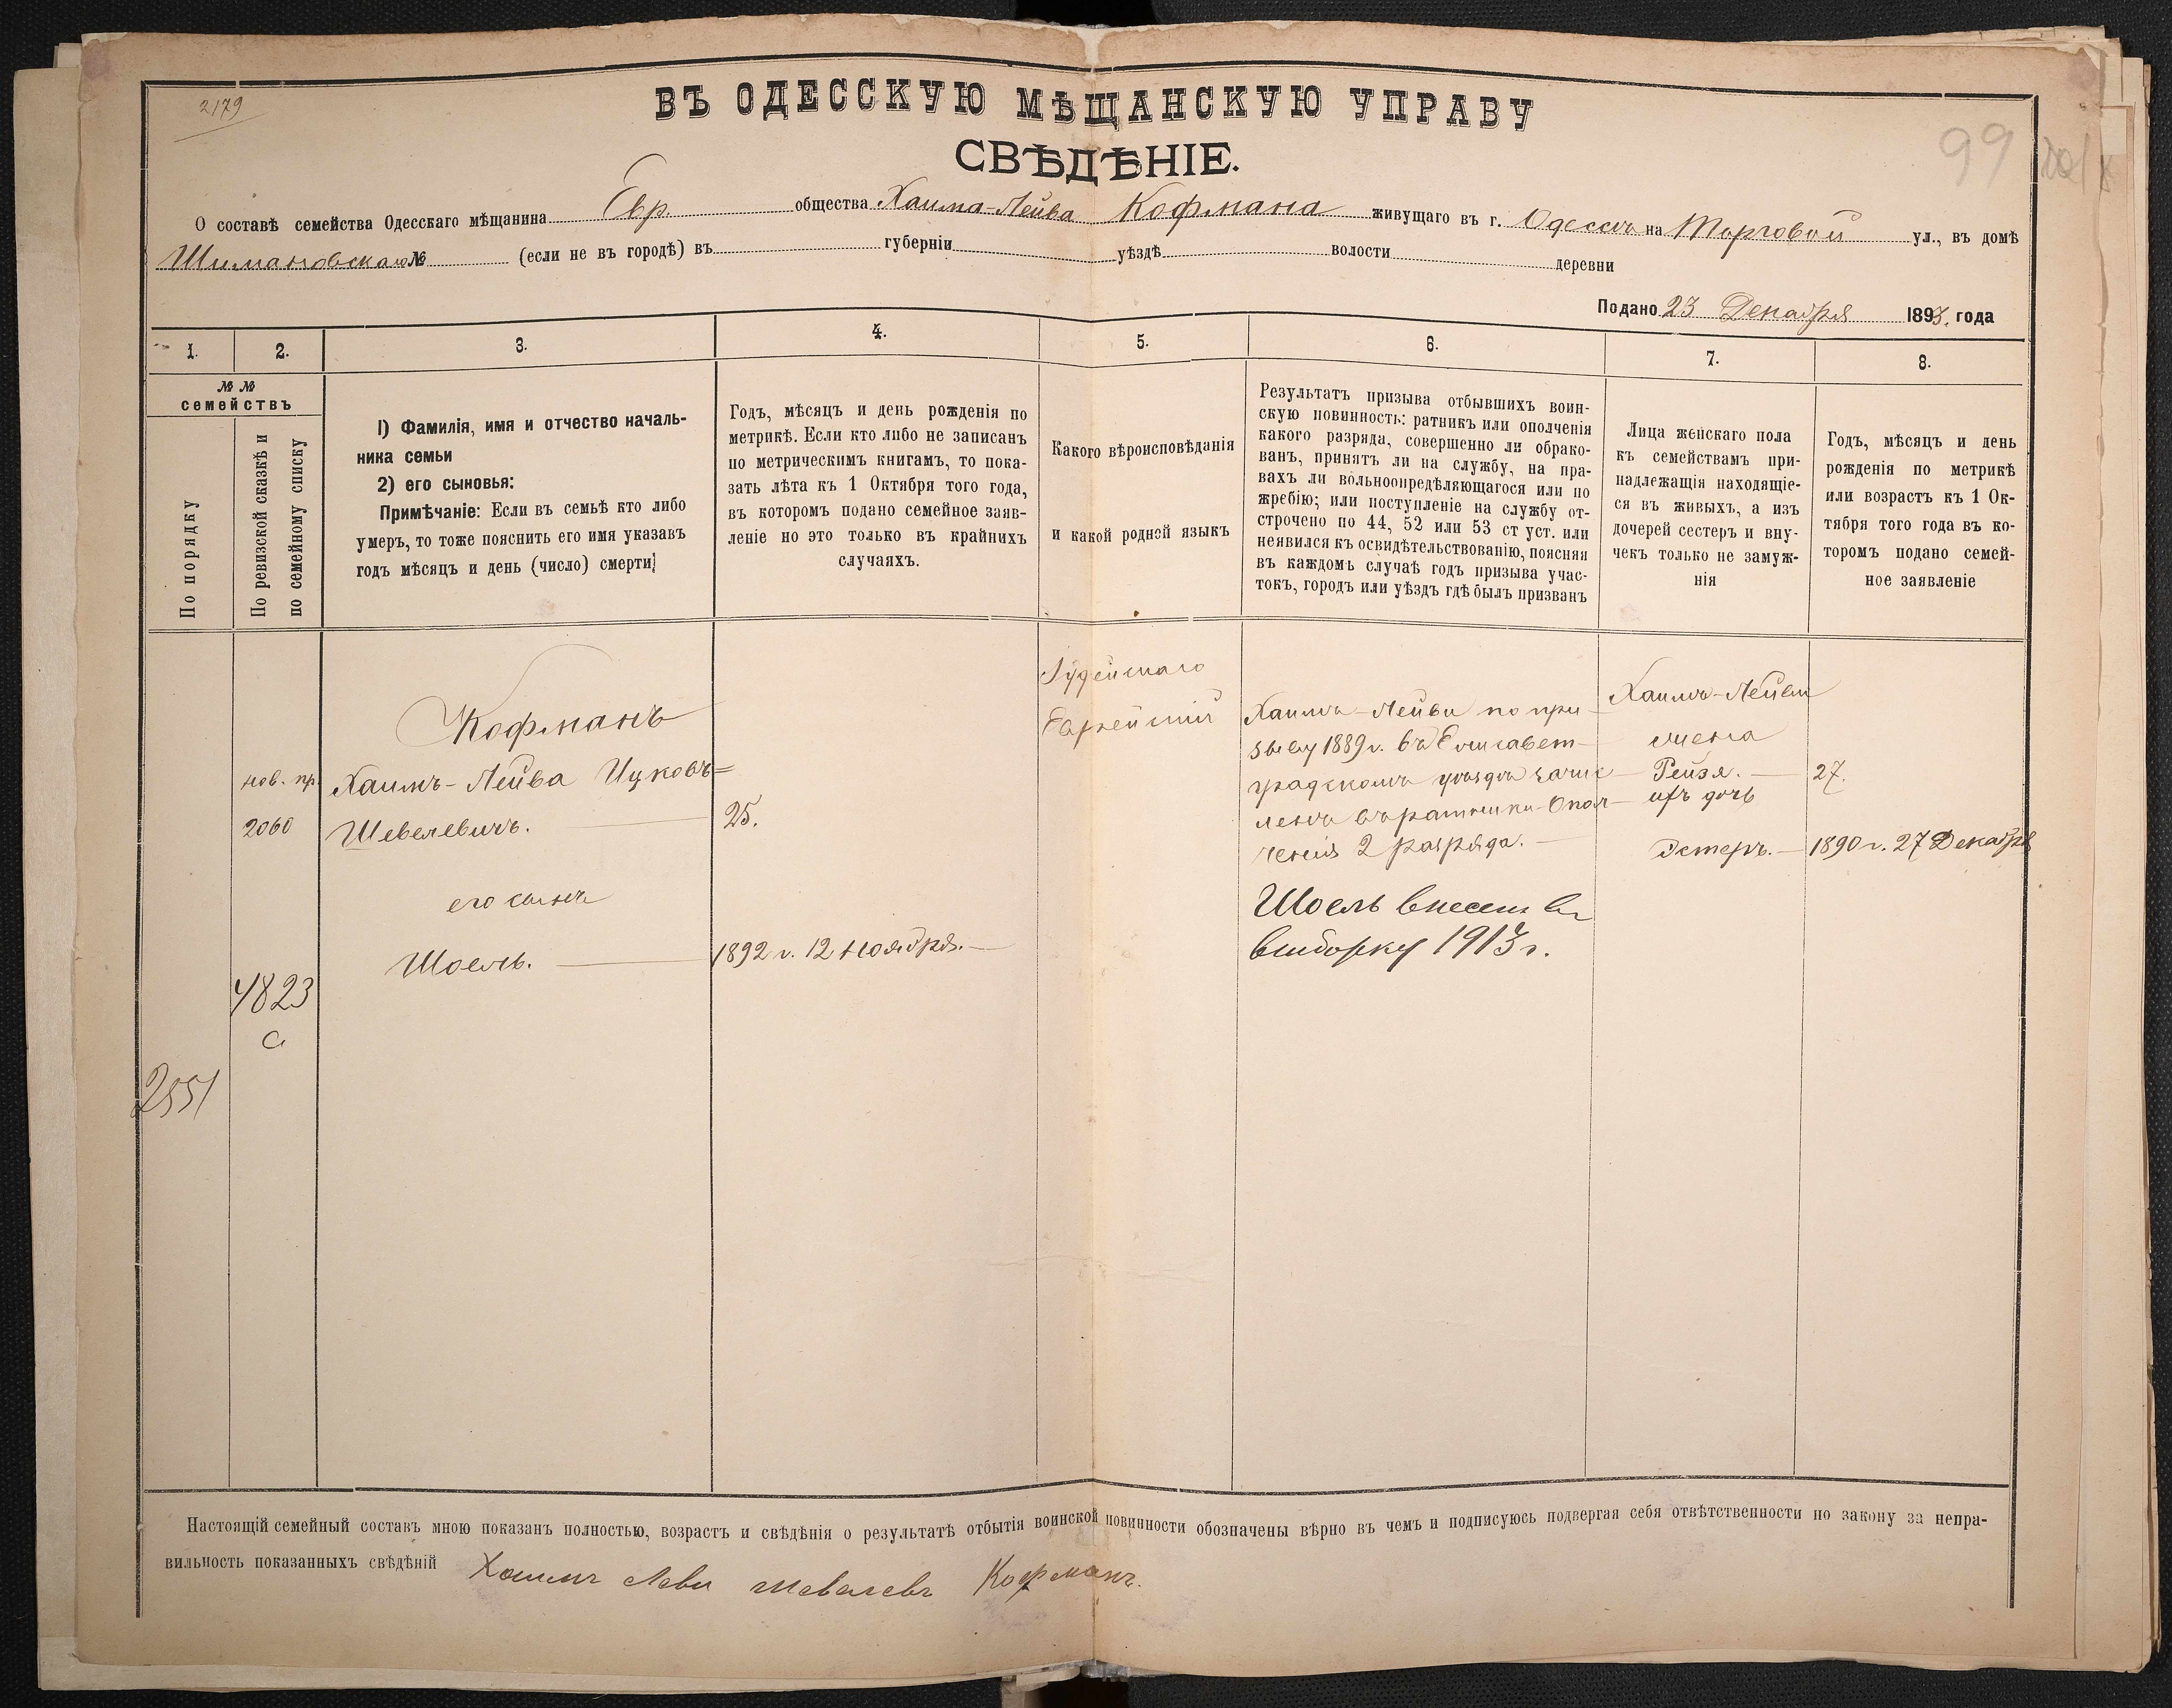 2179
ВЪ ОДЕССКУЮ МѢЩАНСКУЮ УПРАВУ
99
СВѢДѢНІЕ.
О составѣ семейства Одесскаго мѣщанина Евр. общества Хаима-Лейва Кофмана живущаго въ г. Одессѣ на Торговой ул., въ домѣ
Шимановскаго № (если не въ городѣ) въ губерніи уѣздѣ волости деревни
Подано 23 Декабря 1893. года
1.
2.
3.
4.
5.
6.
7.
8.
№ №
семействъ
По порядку
По ревизской сказкѣ и
по семейному списку
1) Фамилія, имя и отчество началь-
ника семьи
2) его сыновья:
Примѣчаніе: Если въ семьѣ кто либо
умеръ, то тоже пояснить его имя указавъ
годъ мѣсяцъ и день (число) смерти
Годъ, мѣсяцъ и день рожденія по
метрикѣ. Если кто либо не записанъ
по метрическимъ книгамъ, то пока-
зать лѣта къ 1 Октября того года,
въ которомъ подано семейное заяв-
леніе но это только въ крайнихъ
случаяхъ.
Какого вѣроисповѣданія
и какой родной языкъ
Результатъ призыва отбывшихъ воин-
скую повинность: ратникъ или ополченія
какого разряда, совершенно ли обрако-
ванъ, принятъ ли на службу, на пра-
вахъ ли вольноопредѣляющагося или по
жребію; или поступленіе на службу от-
строчено по 44, 52 или 53 ст уст. или
неявился къ освидѣтельствованію, поясняя
въ каждомъ случаѣ годъ призыва учас-
токъ, городъ или уѣздъ гдѣ былъ призванъ
Лица женскаго пола
къ семействамъ при-
надлежащія находящіе-
ся въ живыхъ, а изъ
дочерей сестеръ и вну-
чекъ только не замуж-
нія
Годъ, мѣсяцъ и день
рожденія по метрикѣ
или возрастъ къ 1 Ок-
тября того года въ ко-
торомъ подано семей-
ное заявленіе
нов. пр.
2060
4823
а
2551
Кофманъ
Хаимъ-Лейва Ицковъ=
Шевелевичъ.
25.
его сынъ
Шоель.
1892 г. 12 Ноября.
Іудейскаго
Еврейскій
Хаимъ-Лейви по при-
зыву 1889 г. въ Елисавет-
градскомъ уѣздѣ зачис-
ленъ въ ратники Опол-
ченія 2 разряда.
Шоель внесенъ въ
выборку 1913 г.
Хаимъ-Лейви
жена
Рейзя.
27.
ихъ дочь
Эстеръ.
1890 г. 27 Декабря
Настоящій семейный составъ мною показанъ полностью, возрастъ и свѣдѣнія о результатѣ отбытія воинской повинности обозначены вѣрно въ чемъ и подписуюсь подвергая себя отвѣтственности по закону за непра-
вильность показанныхъ свѣдѣній Хаимъ Леви Шевелевъ Кофманъ.